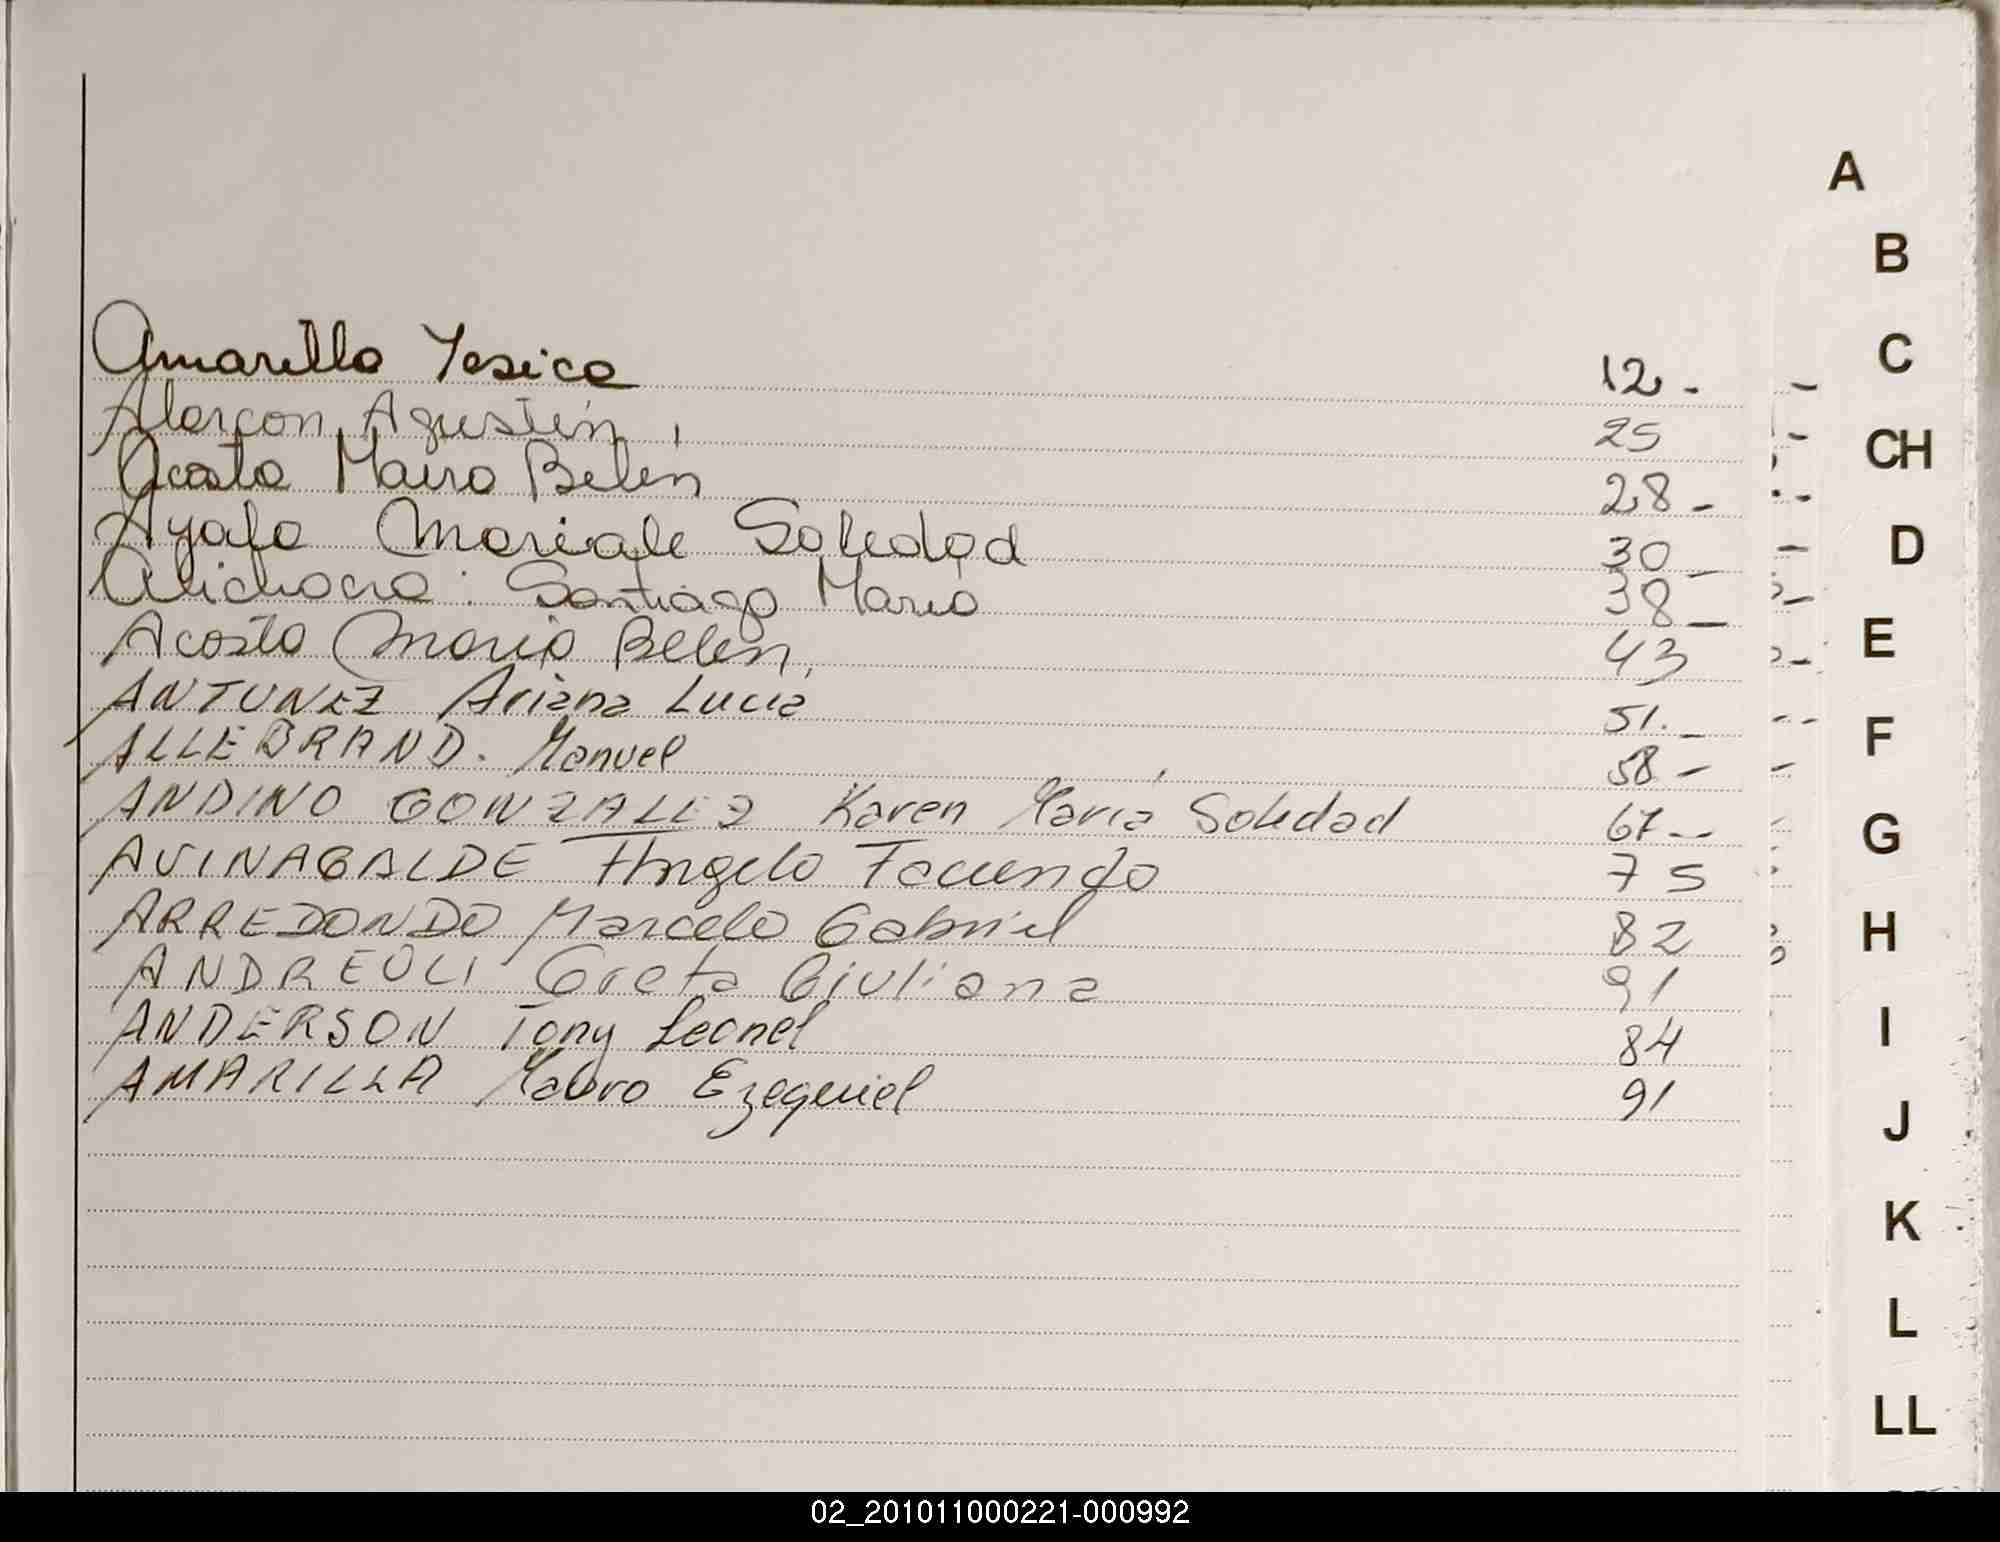 Amarilla Yesica 12.-
Alarcon Agustín, 25
Acosta Maira Belén 28-
Ayala Mariale Soledad 30-
Santiago Mario 38-
Acosta Maria Belen, 43
ANTUNEZ Ariana Lucia 51.-
ALLEBRAND. Manuel 58-
ANDINO GONZALEZ Karen María Soledad 67--
AVINAGALDE Angelo Facundo 75
ARREDONDO Marcelo Gabriel 82
ANDREOLI Greta Giuliana 91
ANDERSON Tony Leonel 84
AMARILLA Mauro Ezequiel 91
A
B
C
CH
D
E
F
G
H
I
J
K
L
LL
02_201011000221-000992